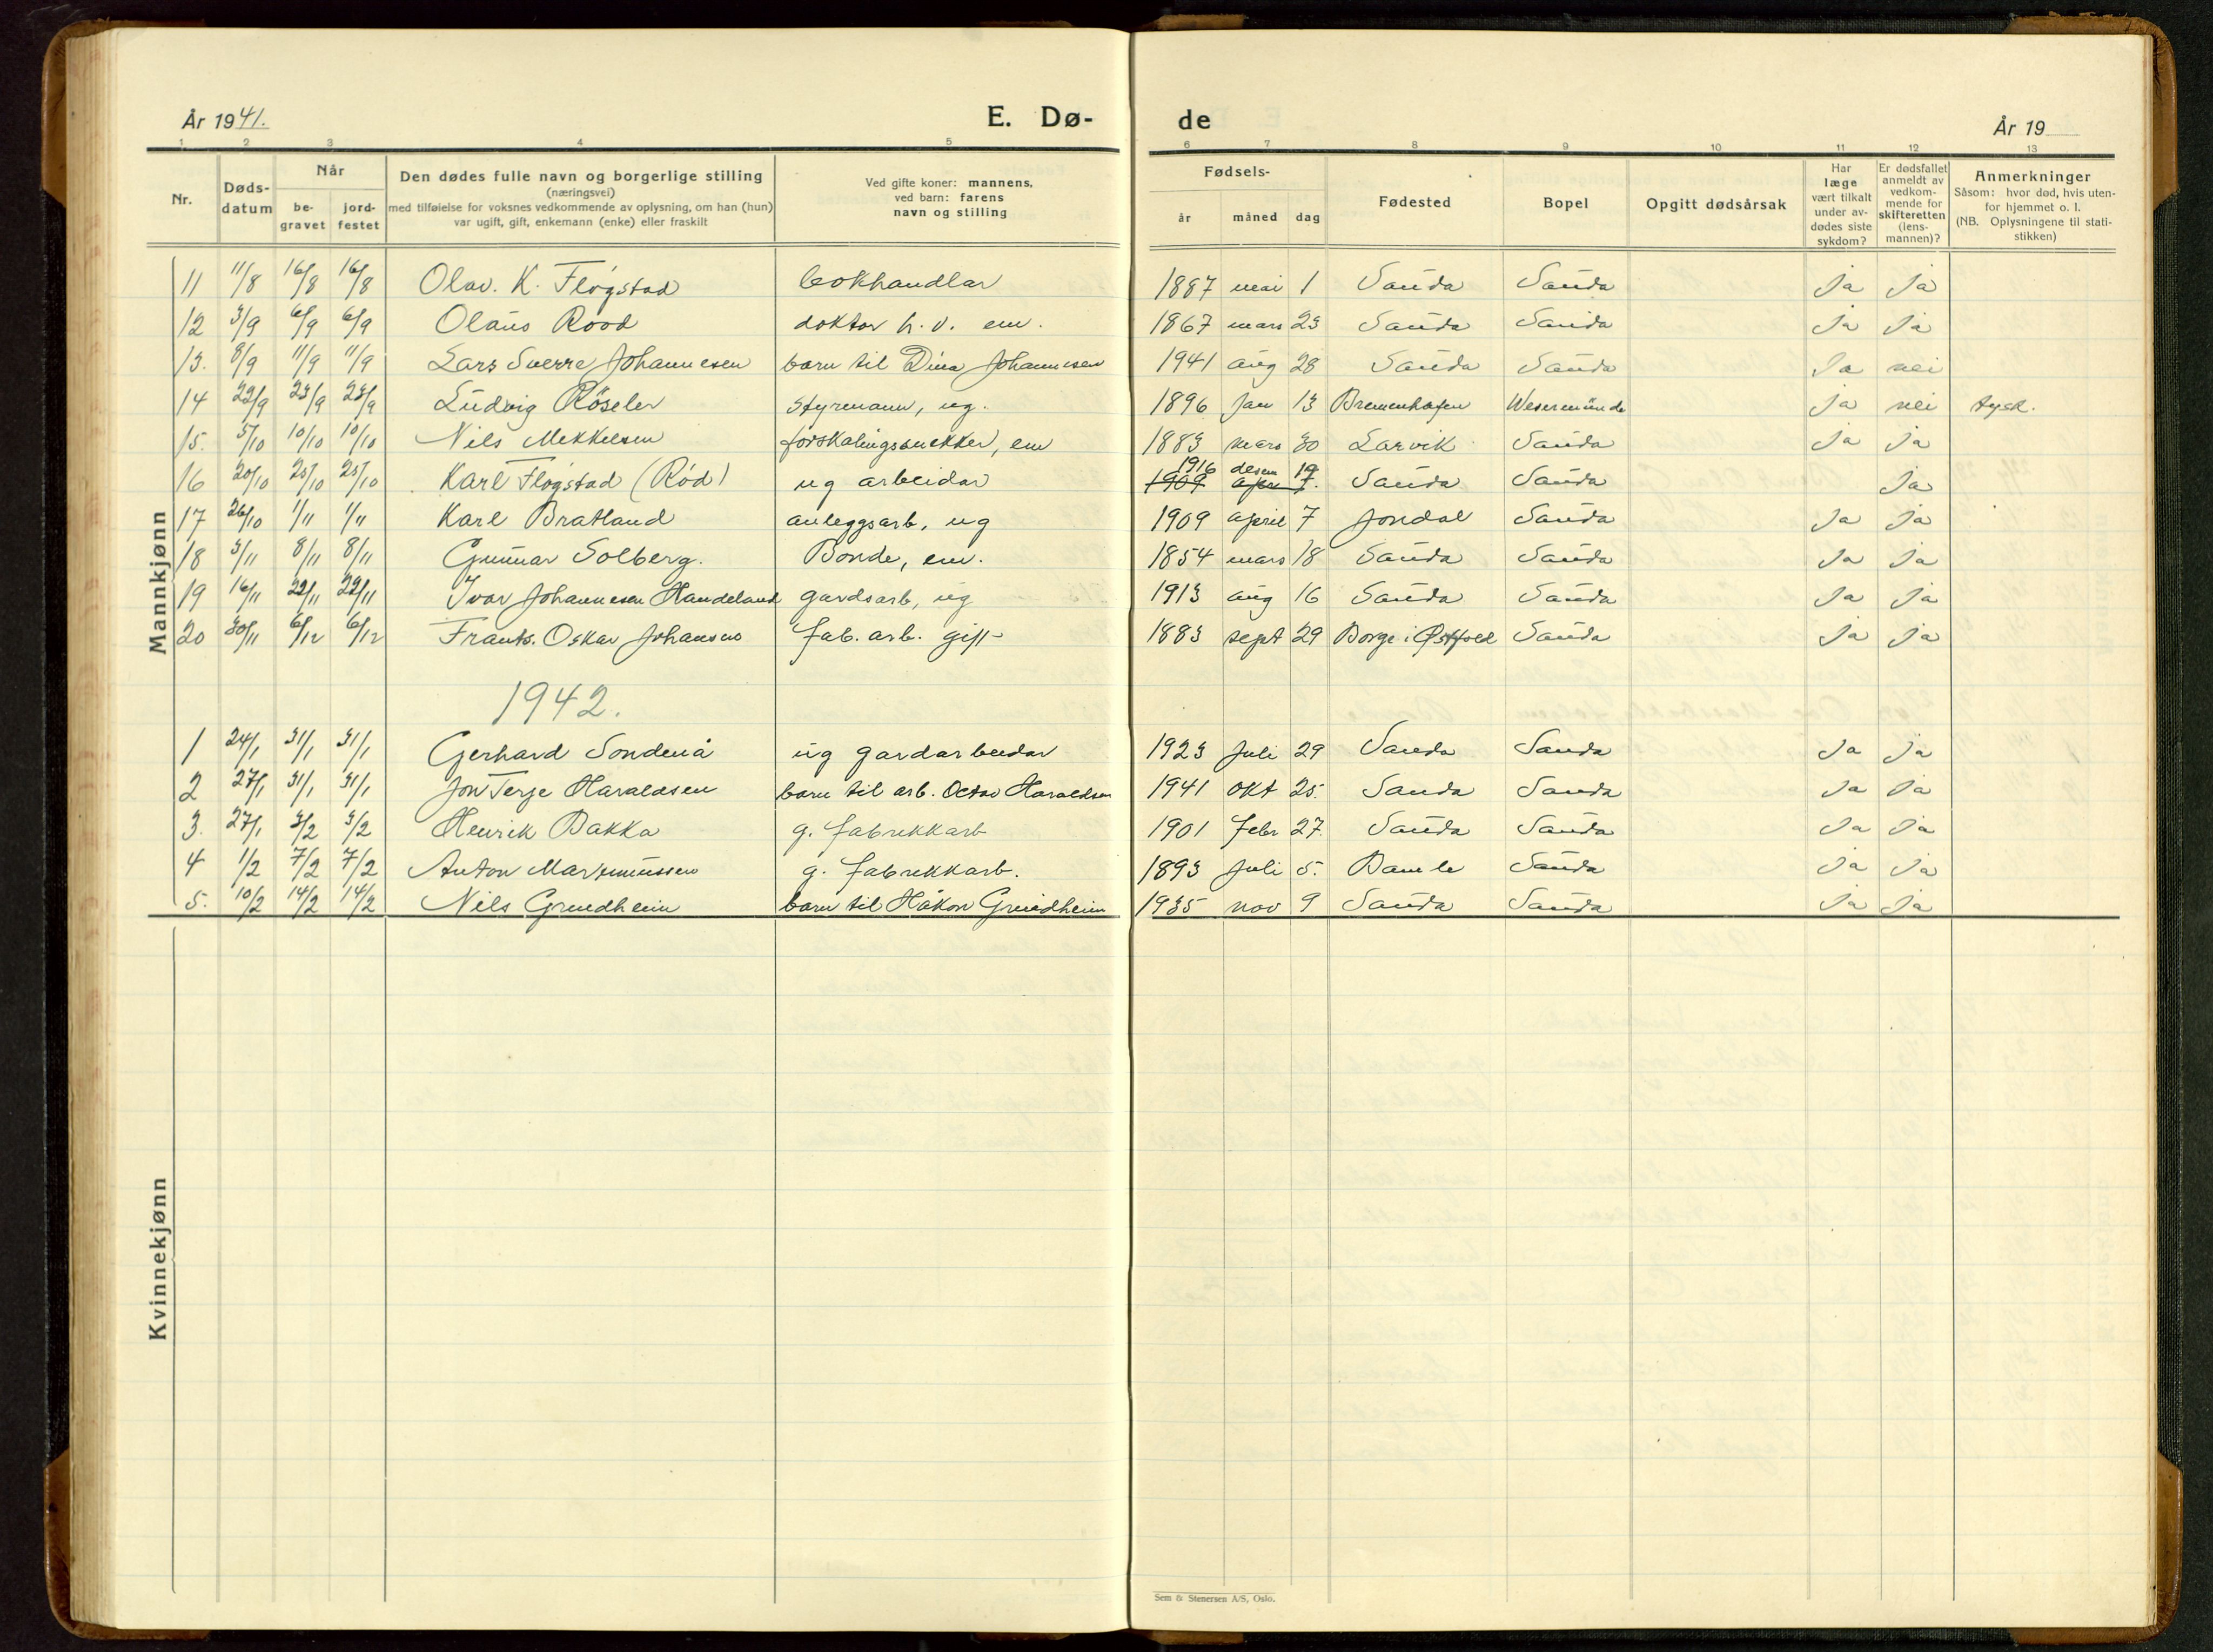 År 1941.
E. Dø-
de
År 19
1 2 3 4 5 6 7 8 9 10 11 12 13
Nr. Døds-datum Når be-gravet jord-festet Den dødes fulle navn og borgerlige stilling (næringsvei) med tilføielse for voksnes vedkommende av oplysning, om han (hun) var ugift, gift, enkemann (enke) eller fraskilt Ved gifte koner: mannens, ved barn: farens navn og stilling Fødsels- år måned dag Fødested Bopel Opgitt dødsårsak Har læge vært tilkalt under av-dødes siste sykdom? Er dødsfallet anmeldt av vedkom-mende for skifteretten (lens-mannen)? Anmerkninger Såsom: hvor død, hvis uten-for hjemmet o. l. (NB. Oplysningene til stati-stikken)
Mannkjønn
11 11/8 16/8 16/8 Olav. K. Fløgstad bokhandlar 1887 mai 1 Sauda Sauda Ja Ja
12 3/9 6/9 6/9 Olaus Rood doktor h.v. em. 1867 mars 23 Sauda Sauda Ja Ja
13. 8/9 11/9 11/9 Lars Sverre Johannesen barn til Dina Johannesen 1941 aug 28 Sauda Sauda Ja nei
14 22/9 23/9 23/9 Ludvig Röseler Styrmann, ug. 1896 Jan 13 Bremenhafen Wesermünde Ja nei tysk.
15. 5/10 10/10 10/10 Nils Mekkelsen forskalingssnekker, em 1883 mars 30 Larvik Sauda Ja Ja
16 20/10 25/10 25/10 Karl Fløgstad (Rød) ug arbeidar 1916 desem 19 1909 apr 7. Sauda Sauda Ja
17 26/10 1/11 1/11 Karl Bratland anleggsarb, ug 1909 april 7 Jondal Sauda Ja Ja
18 3/11 8/11 8/11 Gunnar Solberg. Bonde, em. 1854 mars 18 Sauda Sauda Ja Ja
19 16/11 22/11 22/11 Ivar Johannesen Handeland gardsarb, ug 1913 aug 16 Sauda Sauda Ja Ja
20 30/11 6/12 6/12 Frants. Oskar Johansen fab. arb. gift 1883 sept 29 Borge i Østfold Sauda Ja Ja
1942.
1 24/1 31/1 31/1 Gerhard Søndenå ug gardarbeidar 1923 Juli 29 Sauda Sauda Ja Ja
2 27/1 31/1 31/1 Jon Terje Haraldsen barn til arb. Octav Haraldsen 1941 okt 25. Sauda Sauda Ja Ja
3. 27/1 3/2 3/2 Henrik Bakka g. fabrikkarb 1901 febr 27. Sauda Sauda Ja Ja
4 1/2 7/2 7/2 Anton Marsmussen g. fabrikkarb. 1893 Juli 5. Bamle Sauda Ja Ja
5. 10/2 14/2 14/2 Nils Grindheim barn til Håkon Grindheim 1935 nov 9 Sauda Sauda Ja Ja
Kvinnekjønn
Sem & Stenersen A/S, Oslo.